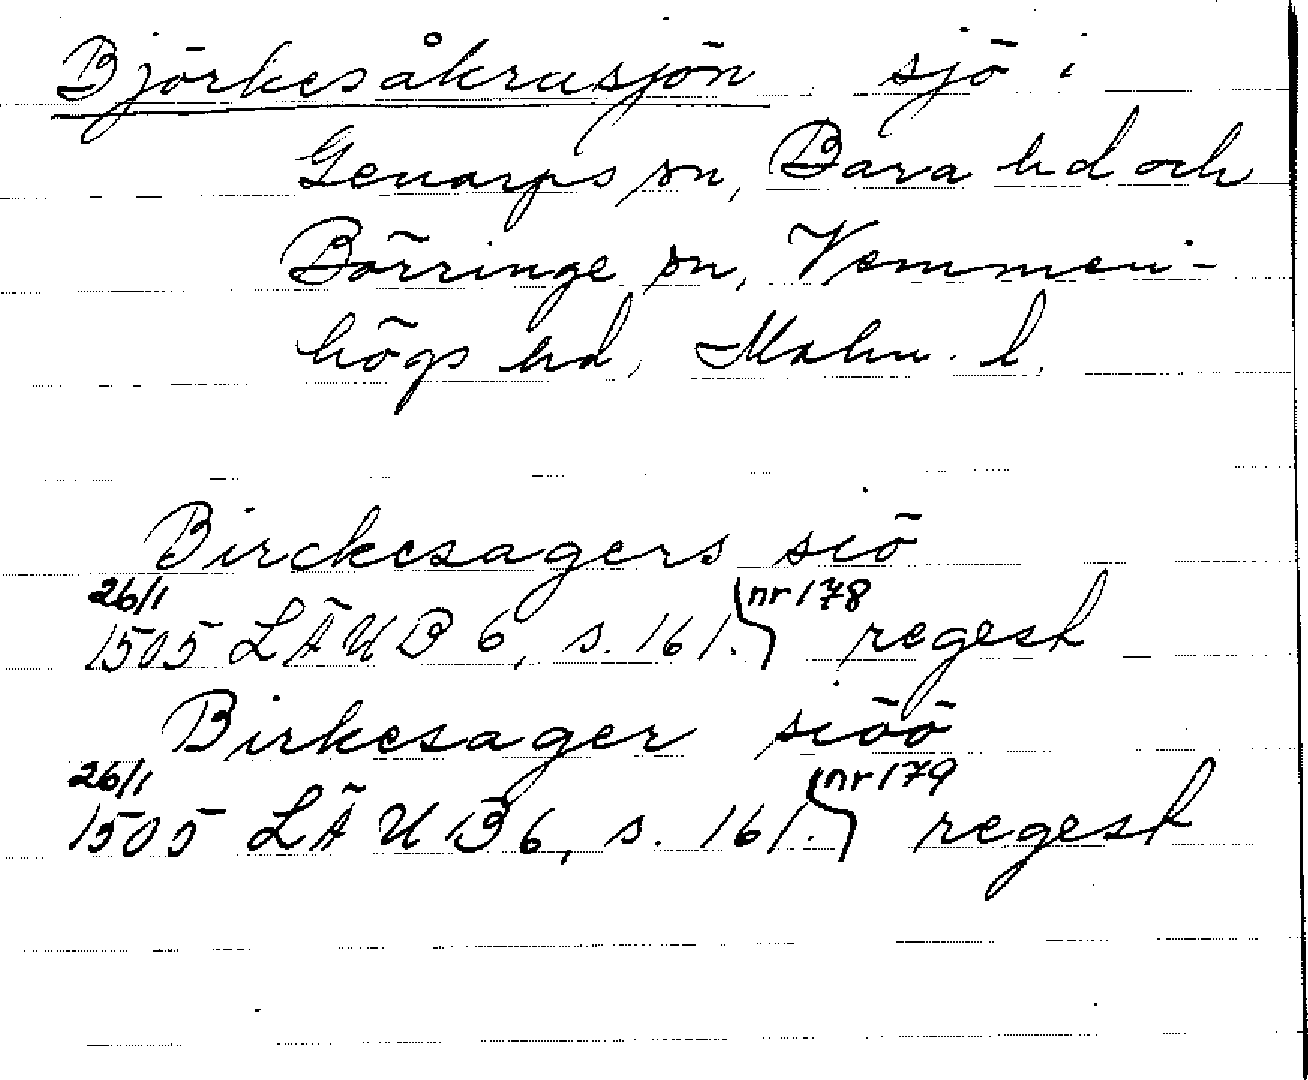 Björkesåkrasjön sjö i
Genarps sn, Bara hd och
Börringe sn, Vemmen-
högs hd, Malm. l.
Birckesagers siö
26/1 nr 178
1505 LÄUB 6, s. 161. regest
Birkesager siöö
26/1 nr 179
1505 LÄUB 6, s. 161. regest